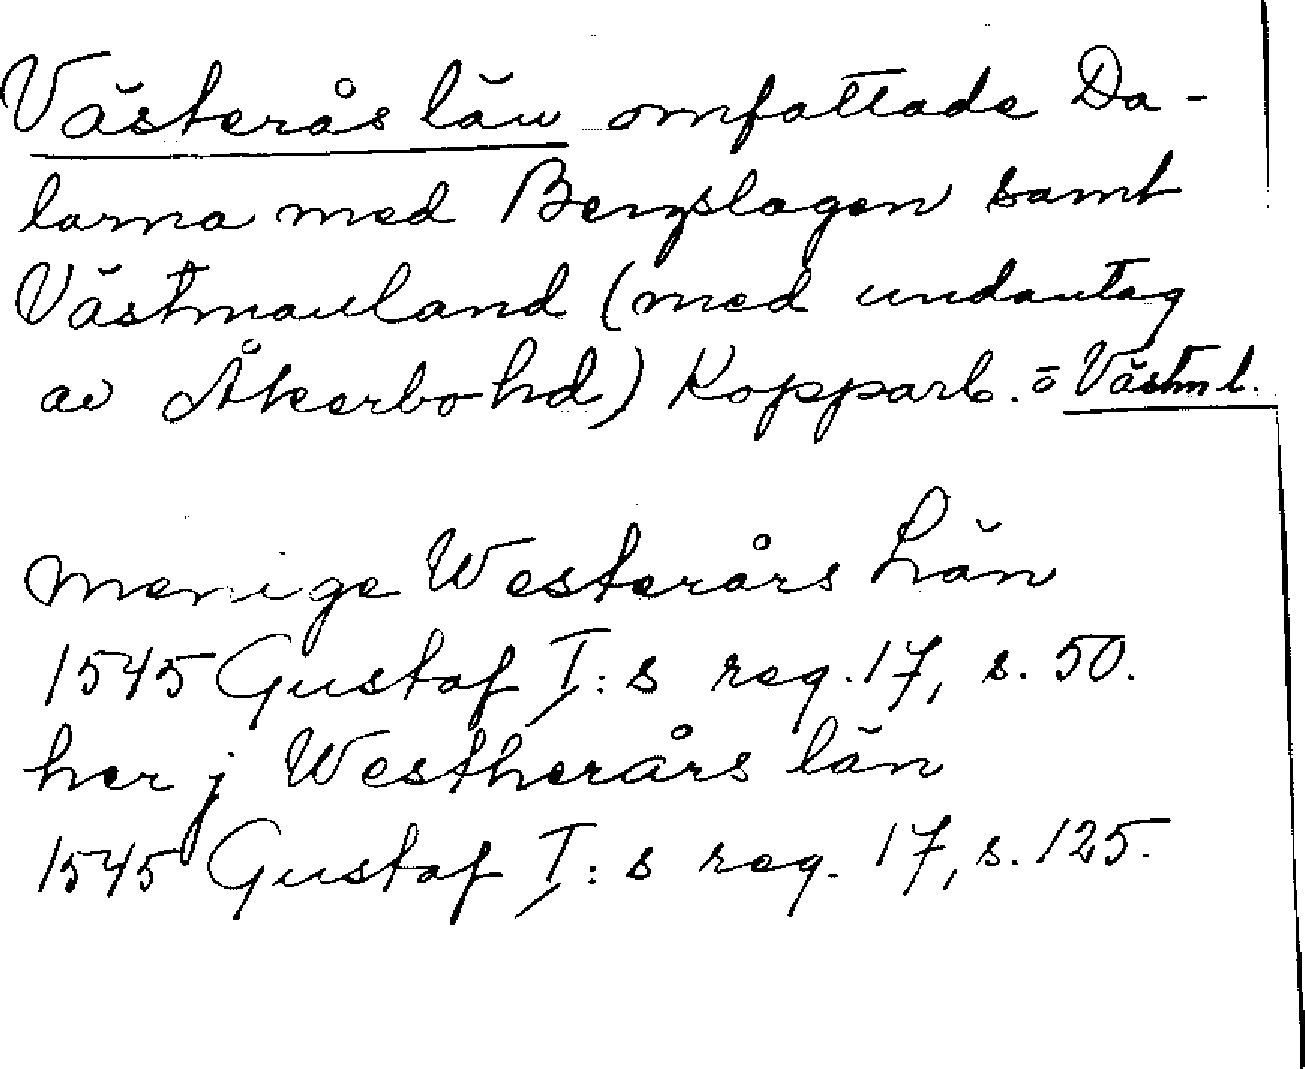 Västerås län omfattade Da-
larna med Bergslagen samt
Västmanland (med undantag
av Åkerbo hd) Kopparb. o Västm l.
menige Westerårs Län
1545 Gustaf I:s reg. 17, s. 50.
her j Westherårs län
1545 Gustaf I:s reg. 17, s. 125.